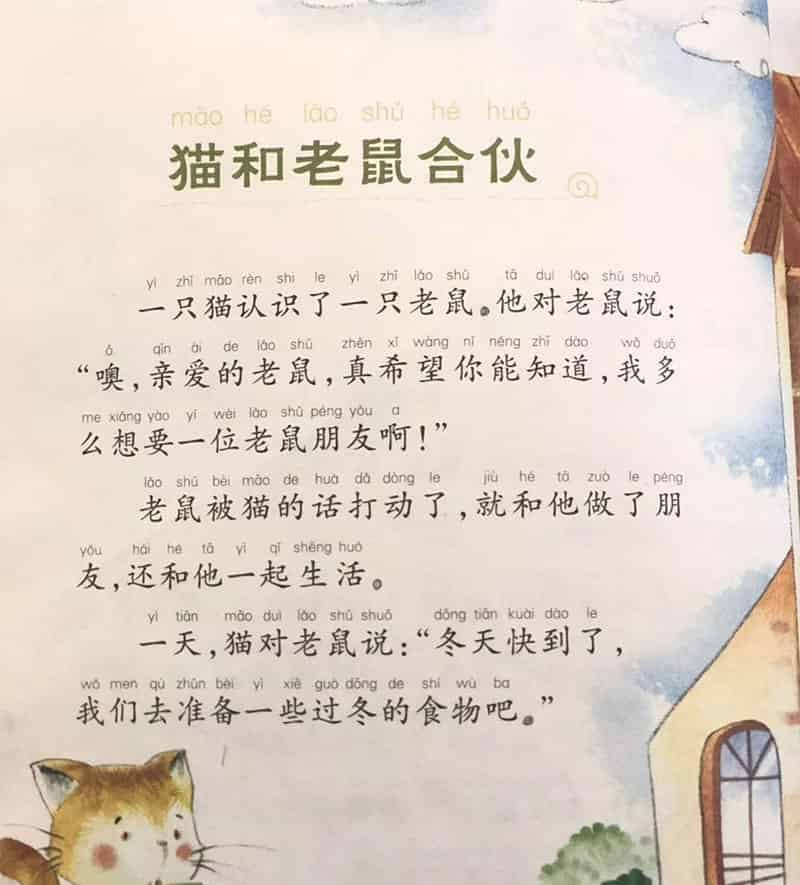 māo hé lǎo shǔ hé huǒ
猫和老鼠合伙
yì zhī māo rèn shi le yì zhī lǎo shǔ tā duì lǎo shǔ shuō
一只猫认识了一只老鼠。他对老鼠说：
ō qīn ài de lǎo shǔ zhēn xī wàng nǐ néng zhī dào wǒ duō
“噢，亲爱的老鼠，真希望你能知道，我多
me xiǎng yào yí wèi lǎo shǔ péng yǒu a
么想要一位老鼠朋友啊！”
lǎo shǔ bèi māo de huà dǎ dòng le jiù hé tā zuò le péng
老鼠被猫的话打动了，就和他做了朋
yǒu hái hé tā yì qǐ shēng huó
友，还和他一起生活。
yì tiān māo duì lǎo shǔ shuō dōng tiān kuài dào le
一天，猫对老鼠说：“冬天快到了，
wǒ men qù zhǔn bèi yì xiē guò dōng de shí wù ba
我们去准备一些过冬的食物吧。”